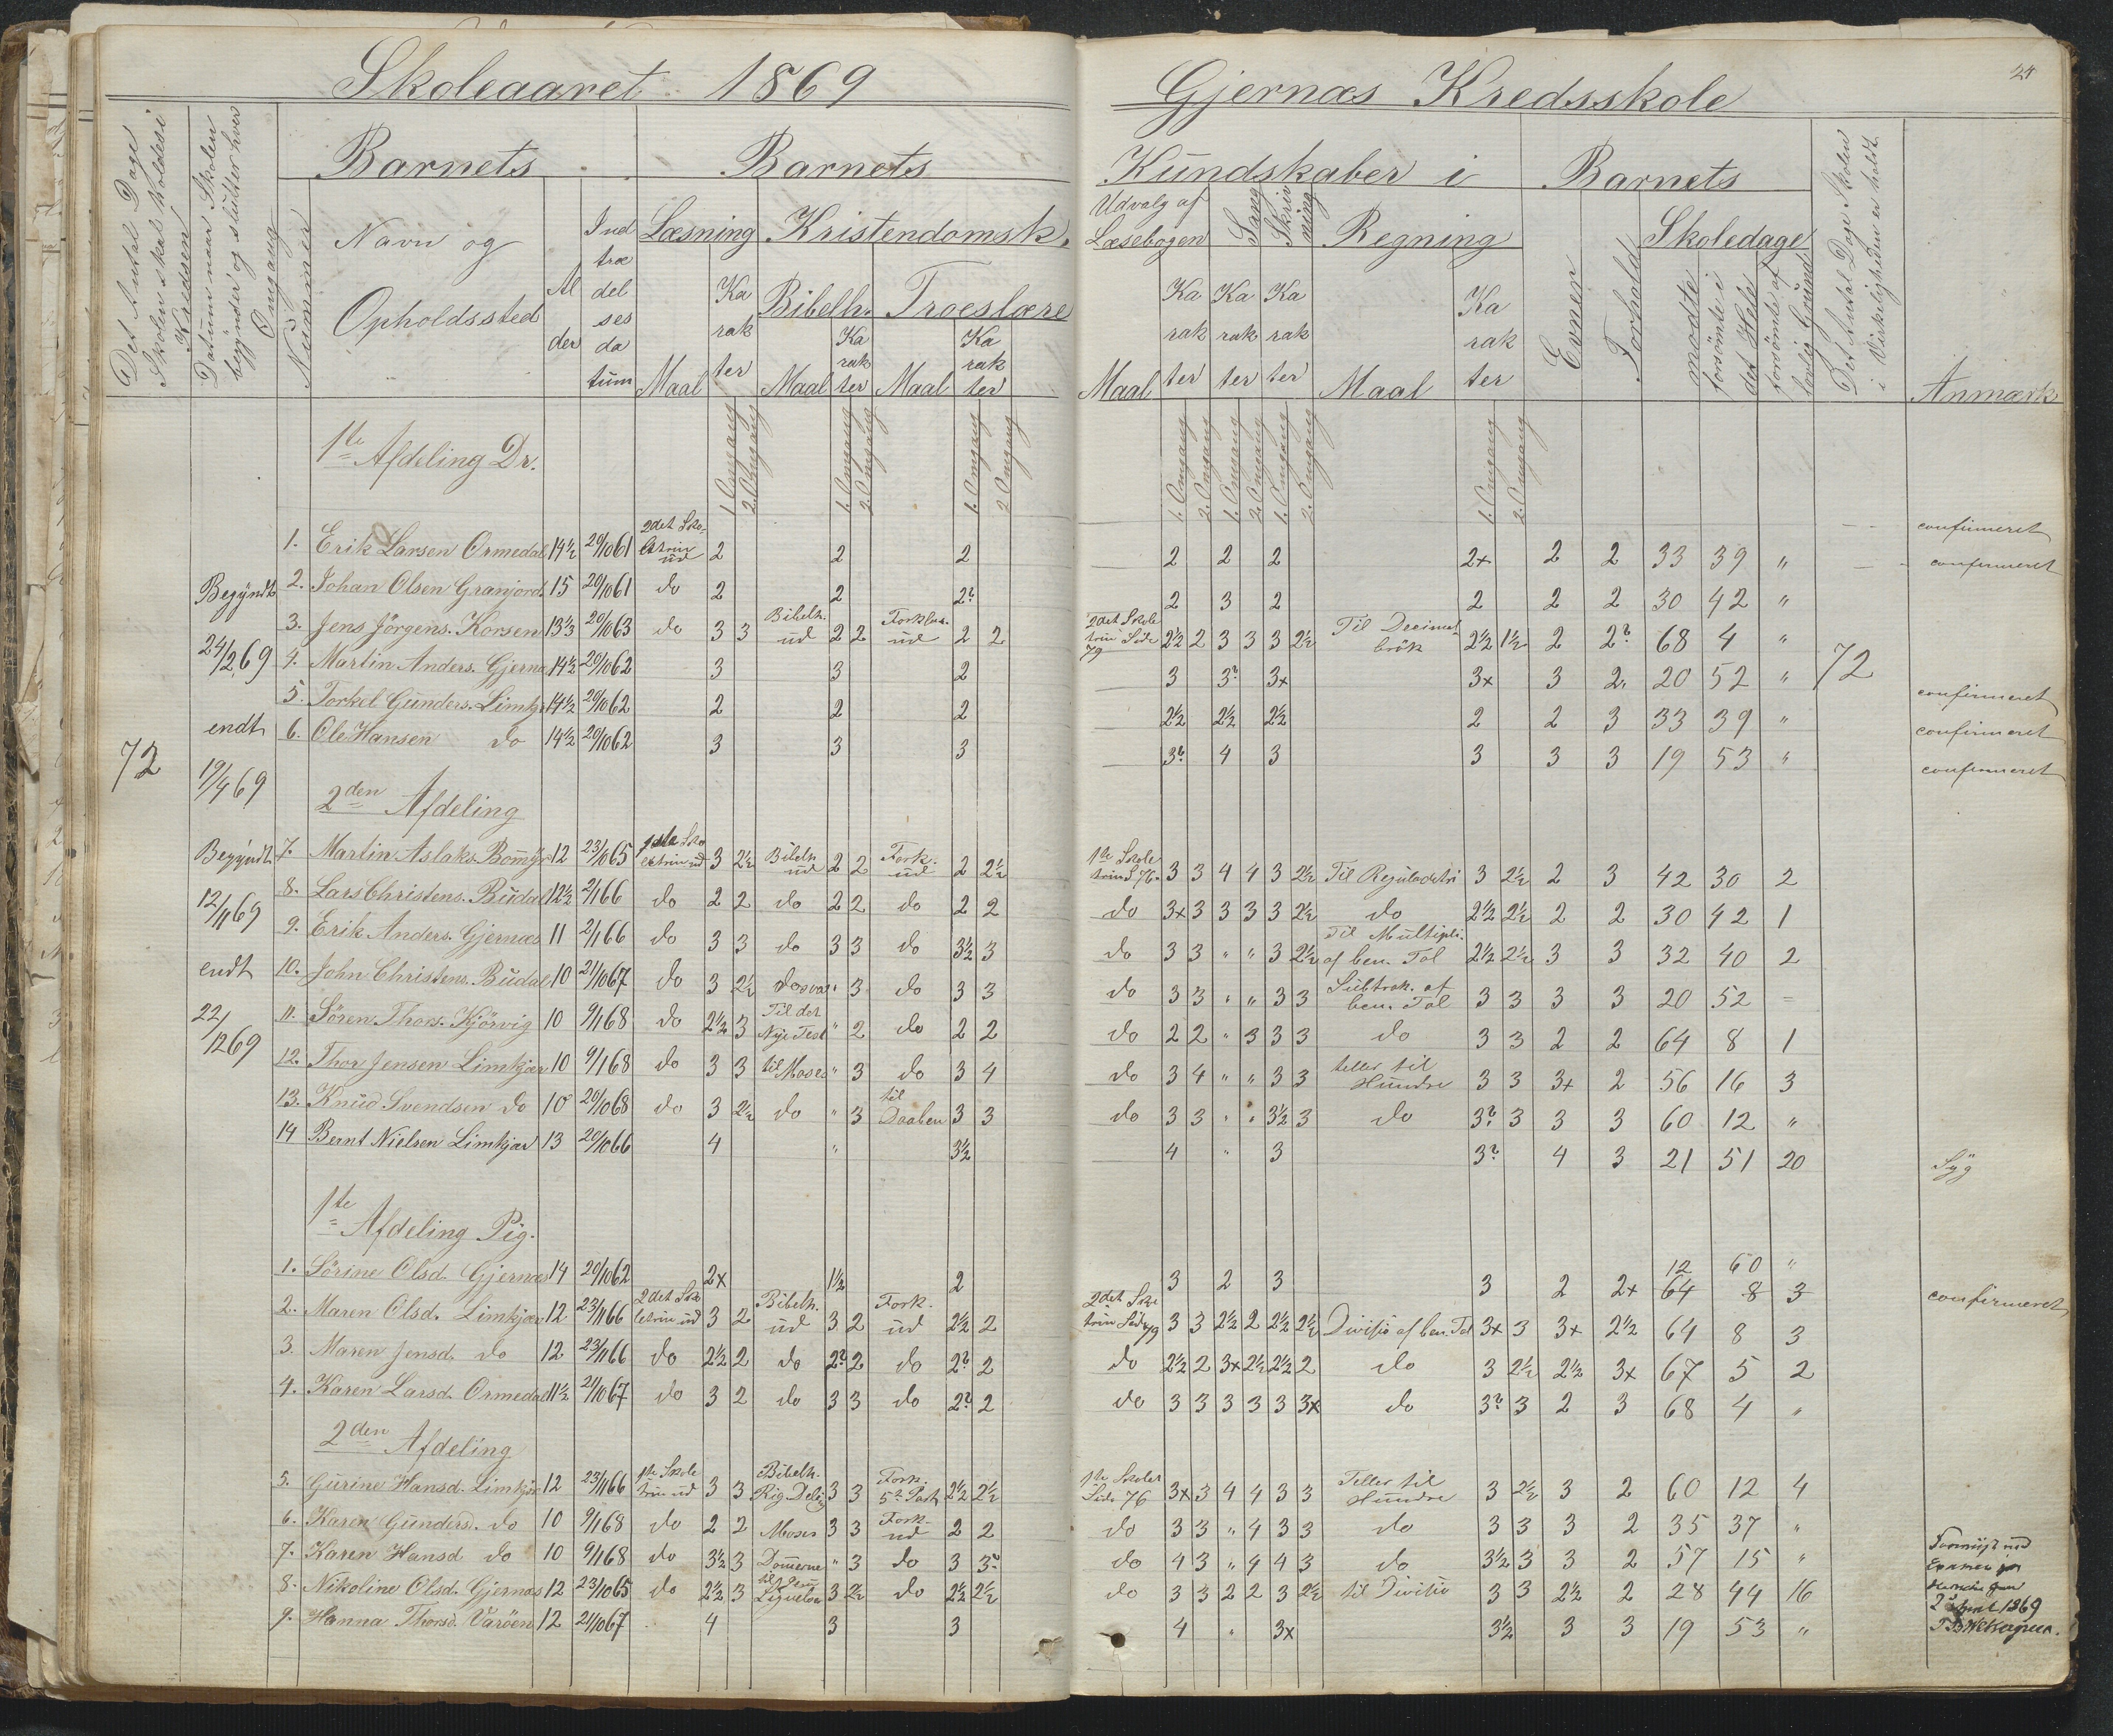 Skoleaaret 1869
Gjernæs Kredsskole
24
Det Antal Dage Skolen skal holdes i Kredsen
Datum naar Skolen begynder og slutter hver Omgang
Nummer
Barnets
Navn og Opholdssted
Alder
Indtrædelsesdatum
Barnets
Kundskaber i
Læsning
Maal
Karakter
Kristendomsk.
Bibelh.
Maal
Karakter
Troeslære
Maal
Karakter
Udvalg af Læsebogen
Maal
Karakter
Sang
Karakter
Skrivning
Karakter
Regning
Maal
Karakter
Barnets
Evner
Forhold
Skoledage
mödte
forsömte i det Hele
forsömte af lovlig Grund
Det Antal Dage Skolen i Virkeligheden er holdt
Anmærk.
1. Omgang 2. Omgang 1. Omgang 2. Omgang 1. Omgang 2. Omgang 1. Omgang 2. Omgang 1. Omgang 2. Omgang 1. Omgang 2. Omgang 1. Omgang 2. Omgang
72
Begyndt 24/2 69 endt 19/4 69
Begyndt 12/11 69 endt 22/12 69
72
1te Afdeling Dr.
1. Erik Larsen Ormedal 14½ 20/10 61 2det Skoletrin ud 2 2 2 2 2 2 2+ 2 2 33 39 " confirmeret
2. Johan Olsen Granjord 15 20/10 61 do 2 2 2? 2 3 2 2 2 2 30 42 " confirmeret
3. Jens Jörgens. Korsen 13⅓ 20/10 63 do 3 3 Bibelh. ud 2 2 Forklar. ud 2 2 2det Skoletrin Side 79 2½ 2 3 3 3 2½ Til Decimalbrök 2½ 1½ 2 2? 68 4 "
4. Martin Anders. Gjerna 14½ 20/10 62 3 3 2 3 3? 3+ 3+ 3 2 20 52 " confirmeret
5. Torkel Gunders. Limkj 14½ 20/10 62 2 2 2 2½ 2½ 2½ 2 2 3 33 39 " confirmeret
6. Ole Hansen do 14½ 20/10 62 3 3 3 3? 4 3 3 3 3 19 53 " confirmeret
2den Afdeling
7. Martin Aslaks. 12 23/10 65 1ste Skoletrin ud 3 2½ Bibelh ud 2 2 Fork. ud 2 2½ 1te Skoletrin S 76. 3 3 4 4 3 2½ Til Reguladetri 3 2½ 2 3 42 30 2
8. Lars Christens. Budal 12½ 2/1 66 do 2 2 do 2 2 do 2 2 do 3+ 3 3 3 3 2½ do 2½ 2½ 2 2 30 42 1
9. Erik Anders. Gjernæs 11 2/1 66 do 3 3 do 3 3 do 3½ 3 do 3 3 " " 3 2½ Til Multipli. af ben. Tal 2½ 2½ 3 3 32 40 2
10. John Christens. Budal 10 21/10 67 do 3 2½ do " 3 do 3 3 do 3 3 " " 3 3 Subtrak. af ben. Tal 3 3 3 3 20 52 =
11. Sören Thors. Kjörvig 10 9/1 68 do 2½ 3 Til det Nye Test " 2 do 2 2 do 2 2 " 3 3 3 do 3 3 2 2 64 8 1
12. Thor Jensen Limkjær 10 9/1 68 do 3 3 til Moses " 3 do 3 4 do 3 4 " " 3 3 teller til Hundre 3 3 3+ 2 56 16 3
13. Knud Svendsen do 10 20/10 68 do 3 2½ do " 3 til Daaben 3 3 do 3 3 " " 3½ 3 do 3? 3 3 3 60 12 "
14 Bernt Nielsen Limkjær 13 20/10 66 4 " 3½ 4 " 3 3? 4 3 21 51 20 Syg
1te Afdeling Pig.
1. Sörine Olsd. Gjernæs 14 20/10 62 2+ 1½ 2 3 2 3 3 2 2+ 12 60 " confirmeret
64 8 3
2. Maren Olsd. Limkjær 12 23/11 66 2det Skoletrin ud 3 2 Bibelh. ud 3 2 Fork. ud 2½ 2 2det Skoletrin Side 79 3 3 2½ 2 2½ 2½ Divisio af ben. Tal 3+ 3 3+ 2½ 64 8 3
3. Maren Jensd. do 12 23/11 66 do 2½ 2 do 2? 2 do 2? 2 do 2½ 2 3+ 2½ 2½ 2 do 3 2½ 2½ 3+ 67 5 2
4. Karen Larsd. Ormedal 11½ 21/10 67 do 3 2 do 3 3 do 2? 2 do 3 3 3 3 3 3+ do 3? 3 2 3 68 4 "
2den Afdeling
5. Gurine Hansd. Limkjær 12 23/11 66 1te Skoletrin ud 3 3 Bibelh. Rig. Deli 3 3 Fork. 5te Part 2½ 2½ 1te Skoles Side 76 3+ 3 4 4 3 3 Teller til Hundre 3 2½ 3 2 60 12 4
6. Karen Gunders. do 10 9/1 68 do 2 2 Moses 3 3 Fork. ud 2 2 do 3 3 " 4 3 3 do 3 3 3 2 35 37 "
7. Karen Hansd do 10 9/1 68 do 3½ 3 Domerne " 3 do 3 3? do 4 3 " 4 4 3 do 3½ 3 3 2 57 15 "
8. Nikoline Olsd. Gjernæs 12 23/10 65 do 2½ 3 3 2½ do 2½ 2½ do 3 3 2 2 3 2½ til Divisio 3 3 2½ 2 28 44 16
9. Hanna Thorsd. Varöen 12 21/10 67 4 3 3 4 " 3+ 3½ 3 3 19 53 "
Examen
1869